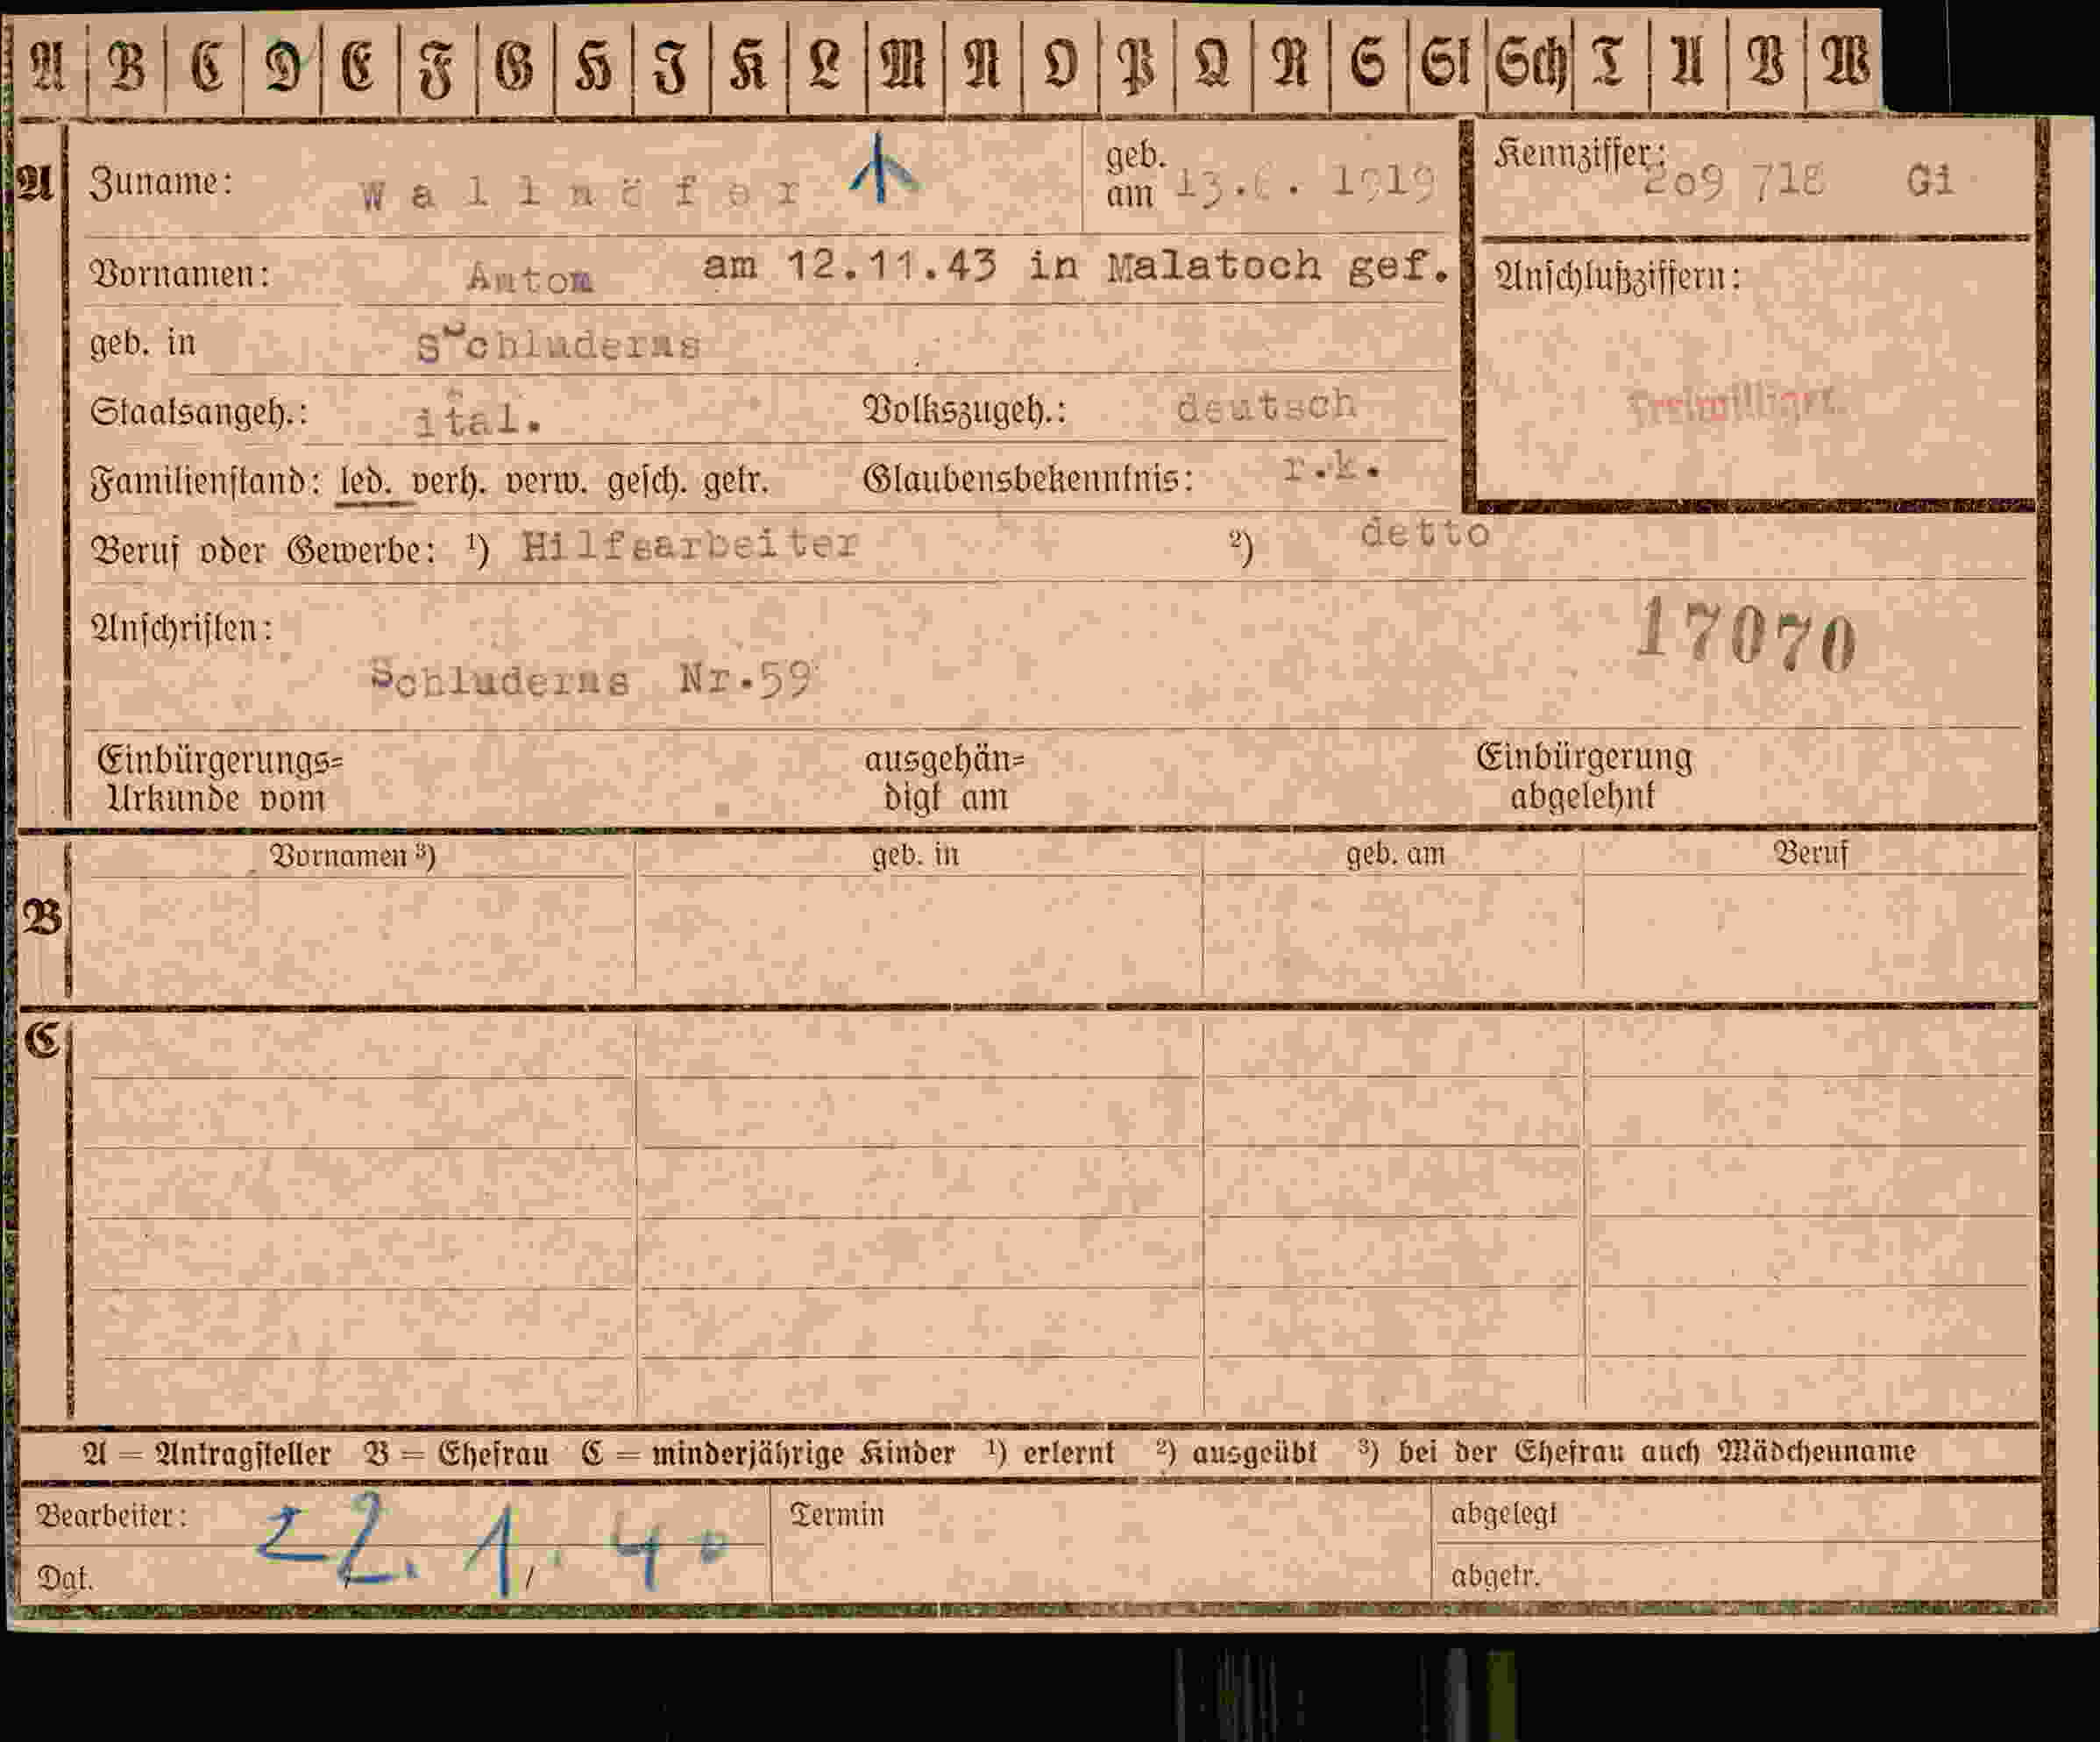 A B C D E F G H I K L M N O P Q R S St Sch T U V W
A Zuname: Wallnöfer geb. am 13.6. 1919 Kennziffer: 209 718 Gi
Vornamen: Anton am 12.11.43 in Malatoch gef. Anschlußziffern:
geb. in Schluderns
Staatsangeh.: ital. Volkszugeh.: deutsch Freiwilliger
Familienstand: led. verh. verw. gesch. getr. Glaubensbekenntnis: r.k.
Beruf oder Gewerbe: ¹) Hilfsarbeiter ²) detto
Anschriften: 17070
Schluderns Nr.59
Einbürgerungs= ausgehän= Einbürgerung
Urkunde vom digt am abgelehnt
Vornamen ³) geb. in geb. am Beruf
B
C
A = Antragsteller B = Ehefrau C = minderjährige Kinder ¹) erlernt ²) ausgeübt ³) bei der Ehefrau auch Mädchenname
Bearbeiter: 22. 1. 40 Termin abgelegt
Dat. abgetr.